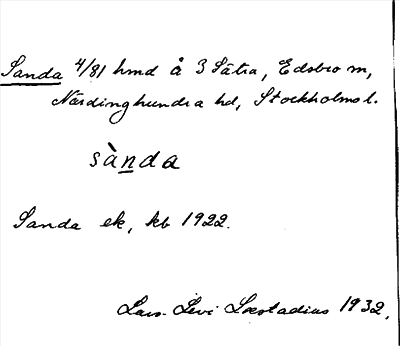 Sanda 4/81 hmd å 3 Sätra, Edsbro sn,
Närdinghundra hd, Stockholms l.
sànda
Sanda ek, kb 1922.
Lars-Levi Læstadius 1932.